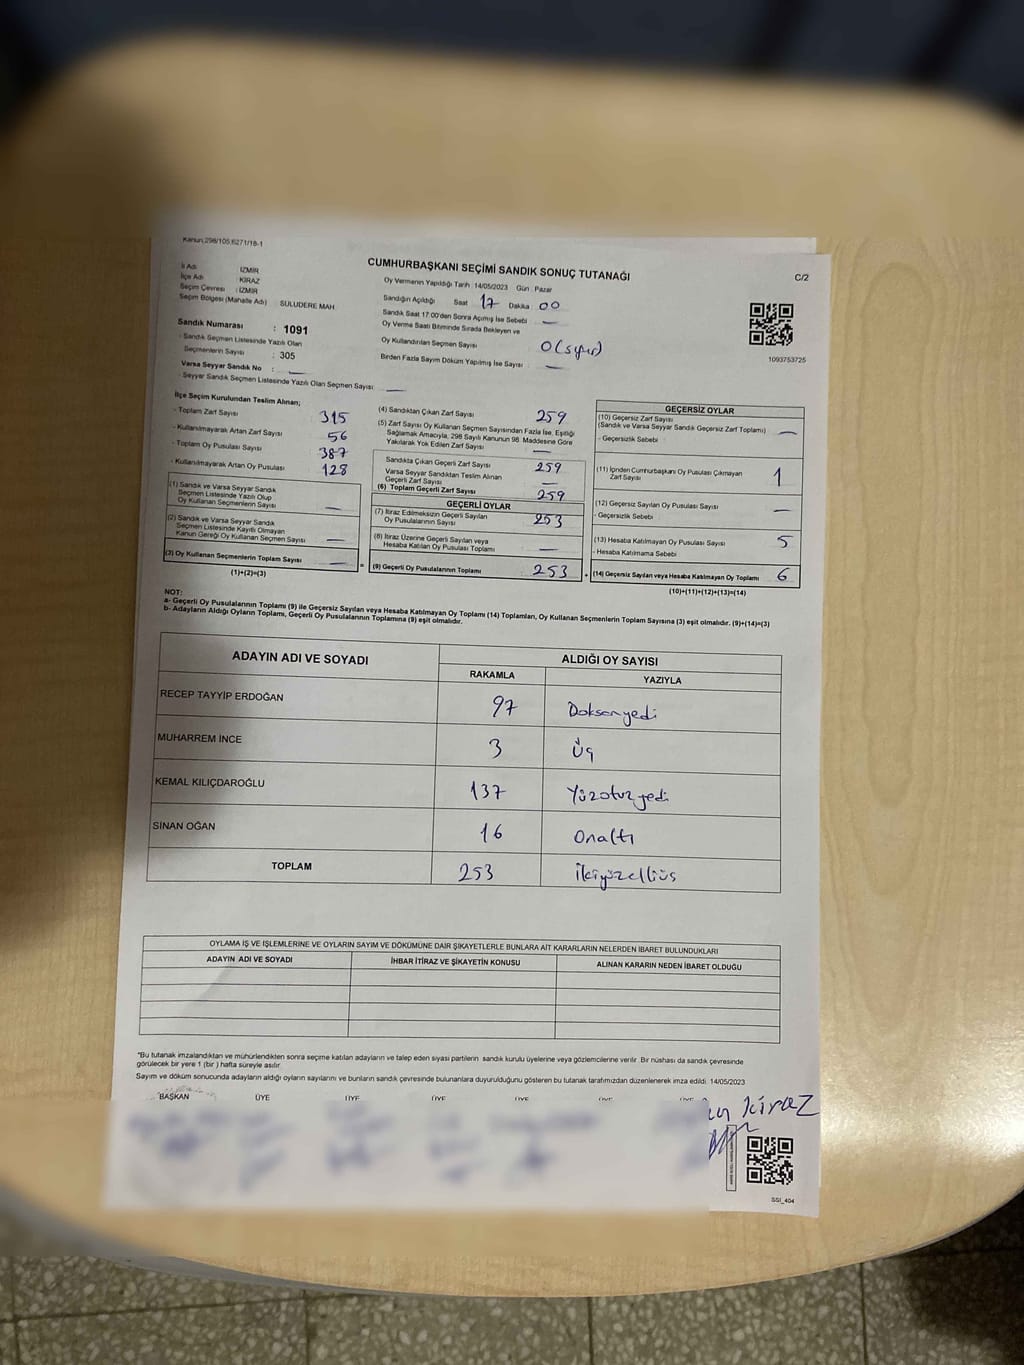 Kanun;298/105,6271/18-1
CUMHURBAŞKANI SEÇİMİ SANDIK SONUÇ TUTANAĞI
C/2
İl Adı : İZMİR
İlçe Adı : KİRAZ
Seçim Çevresi : İZMİR
Seçim Bölgesi (Mahalle Adı) : SULUDERE MAH.
Sandık Numarası : 1091
- Sandık Seçmen Listesinde Yazılı Olan
Seçmenlerin Sayısı : 305
Varsa Seyyar Sandık No : —
- Seyyar Sandık Seçmen Listesinde Yazılı Olan Seçmen Sayısı: —
Oy Vermenin Yapıldığı Tarih :14/05/2023 Gün : Pazar
Sandığın Açıldığı Saat 17 Dakika 00
Sandık Saat 17:00'den Sonra Açılmış İse Sebebi —
Oy Verme Saati Bitiminde Sırada Bekleyen ve
Oy Kullandırılan Seçmen Sayısı 0 (sıfır)
Birden Fazla Sayım Döküm Yapılmış İse Sayısı : —
1093753725
İlçe Seçim Kurulundan Teslim Alınan;
- Toplam Zarf Sayısı 315
- Kullanılmayarak Artan Zarf Sayısı 56
- Toplam Oy Pusulası Sayısı 387
- Kullanılmayarak Artan Oy Pusulası 128
(1) Sandık ve Varsa Seyyar Sandık
Seçmen Listesinde Yazılı Olup
Oy Kullanan Seçmenlerin Sayısı —
(2) Sandık ve Varsa Seyyar Sandık
Seçmen Listesinde Kayıtlı Olmayan
Kanun Gereği Oy Kullanan Seçmen Sayısı —
(3) Oy Kullanan Seçmenlerin Toplam Sayısı —
(1)+(2)=(3)
(4) Sandıktan Çıkan Zarf Sayısı 259
(5) Zarf Sayısı Oy Kullanan Seçmen Sayısından Fazla İse, Eşitliği
Sağlamak Amacıyla; 298 Sayılı Kanunun 98. Maddesine Göre
Yakılarak Yok Edilen Zarf Sayısı —
Sandıkta Çıkan Geçerli Zarf Sayısı 259
Varsa Seyyar Sandıktan Teslim Alınan
Geçerli Zarf Sayısı —
(6) Toplam Geçerli Zarf Sayısı 259
GEÇERLİ OYLAR
(7) İtiraz Edilmeksizin Geçerli Sayılan
Oy Pusulalarının Sayısı 253
(8) İtiraz Üzerine Geçerli Sayılan veya
Hesaba Katılan Oy Pusulası Toplamı —
(9) Geçerli Oy Pusulalarının Toplamı 253
GEÇERSİZ OYLAR
(10) Geçersiz Zarf Sayısı
(Sandık ve Varsa Seyyar Sandık Geçersiz Zarf Toplamı) —
- Geçersizlik Sebebi
(11) İçinden Cumhurbaşkanı Oy Pusulası Çıkmayan
Zarf Sayısı 1
(12) Geçersiz Sayılan Oy Pusulası Sayısı —
- Geçersizlik Sebebi
(13) Hesaba Katılmayan Oy Pusulası Sayısı 5
- Hesaba Katılmama Sebebi
(14) Geçersiz Sayılan veya Hesaba Katılmayan Oy Toplamı 6
(10)+(11)+(12)+(13)=(14)
NOT:
a- Geçerli Oy Pusulalarının Toplamı (9) ile Geçersiz Sayılan veya Hesaba Katılmayan Oy Toplamı (14) Toplamları, Oy Kullanan Seçmenlerin Toplam Sayısına (3) eşit olmalıdır. (9)+(14)=(3)
b- Adayların Aldığı Oyların Toplamı, Geçerli Oy Pusulalarının Toplamına (9) eşit olmalıdır.
ADAYIN ADI VE SOYADI ALDIĞI OY SAYISI
RAKAMLA YAZIYLA
RECEP TAYYİP ERDOĞAN 97 Doksanyedi
MUHARREM İNCE 3 Üç
KEMAL KILIÇDAROĞLU 137 Yüzotuzyedi
SİNAN OĞAN 16 Onaltı
TOPLAM 253 İkiyüzelliüç
OYLAMA İŞ VE İŞLEMLERİNE VE OYLARIN SAYIM VE DÖKÜMÜNE DAİR ŞİKAYETLERLE BUNLARA AİT KARARLARIN NELERDEN İBARET BULUNDUKLARI
ADAYIN ADI VE SOYADI İHBAR İTİRAZ VE ŞİKAYETİN KONUSU ALINAN KARARIN NEDEN İBARET OLDUĞU
*Bu tutanak imzalandıktan ve mühürlendikten sonra seçime katılan adayların ve talep eden siyasi partilerin sandık kurulu üyelerine veya gözlemcilerine verilir. Bir nüshası da sandık çevresinde
görülecek bir yere 1 (bir ) hafta süreyle asılır.
Sayım ve döküm sonucunda adayların aldığı oyların sayılarını ve bunların sandık çevresinde bulunanlara duyurulduğunu gösteren bu tutanak tarafımızdan düzenlenerek imza edildi. 14/05/2023
BAŞKAN ÜYE ÜYE ÜYE ÜYE ÜYE ÜYE
kiraz
SSI_404